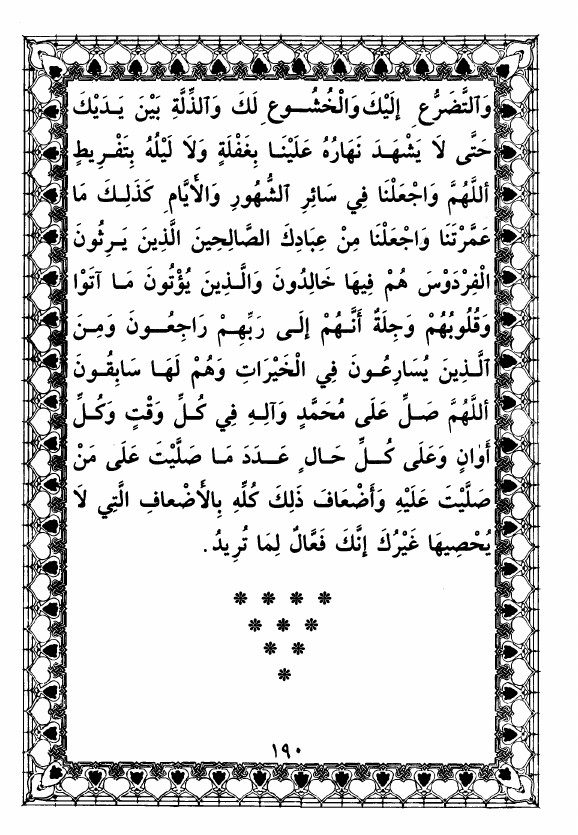 وَٱلتَّضَرُّعِ إِلَيْكَ وَالْخُشُـــوعِ لَكَ وَٱلذِّلَّةِ بَيْنَ يَـدَيْكَ
حَتَّى لَا يَشْهَـدَ نَهَارُهُ عَلَيْنَـا بِغَفْلَةٍ وَلَا لَيْلُهُ بِتَفْـرِيطٍ
أَللَّهُمَّ وَاجْعَلْنَا فِي سَائِرِ ٱلشُّهُورِ وَالْأَيَّامِ كَذَلِـكَ مَا
عَمَّرْتَنَا وَاجْعَلْنَا مِنْ عِبَادِكَ الصَّالِحِينَ الَّذِينَ يَـرِثُونَ
الْفِرْدَوْسَ هُمْ فِيهَا خَالِدُونَ وَالَّـذِينَ يُؤْتُونَ مَـا آتَوْا
وَقُلُوبُهُمْ وَجِلَةٌ أَنَّـهُمْ إِلَـى رَبِّهِـمْ رَاجِعُـــونَ وَمِـنَ
ٱلَّـذِينَ يُسَارِعُـونَ فِي الْخَيْرَاتِ وَهُمْ لَهَـا سَابِقُـونَ
أَللَّهُمَّ صَـلِّ عَلَى مُحَمَّدٍ وَآلِـهِ فِي كُـلِّ وَقْتٍ وَكُـلِّ
أَوَانٍ وَعَلَى كُـــلِّ حَـالٍ عَـدَدَ مَـا صَلَّيْتَ عَلَى مَنْ
صَلَّيْتَ عَلَيْهِ وَأَضْعَافَ ذَلِكَ كُلِّهِ بِالْأَضْعافِ الَّتِي لَا
يُحْصِيهَا غَيْرُكَ إِنَّكَ فَعَّالٌ لِمَا تُرِيدُ.
❋ ❋ ❋ ❋
❋ ❋ ❋
❋ ❋
❋
١٩٠